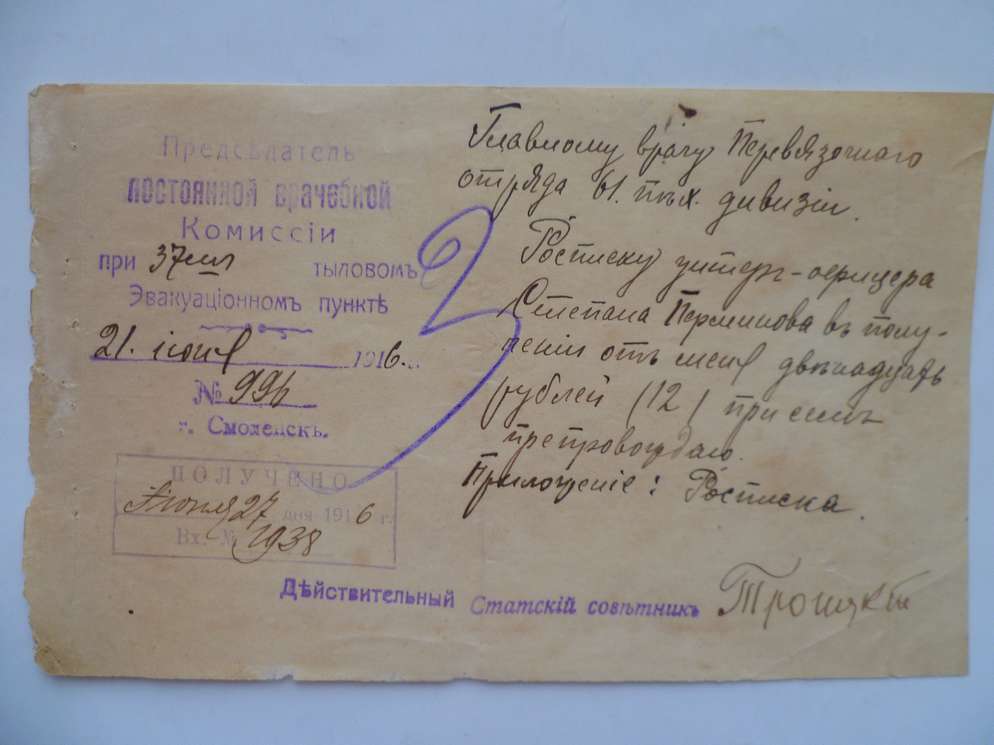 Предсѣдатель
постоянной врачебной
Комиссіи
при 37мъ тыловомъ
Эвакуаціонномъ пунктѣ
21. іюня 1916 г.
№ 996
г. Смоленскъ.
ПОЛУЧЕНО
Іюня 27 дня 1916 г.
Вх. № 1938
Главному врачу Перевязочнаго
отряда 61. пѣх. дивизіи.
Росписку унтеръ-офицера
Степана Перминова въ полу-
ченіи отъ меня двѣнадцать
рублей (12) при семъ
препровождаю.
Приложеніе: Росписка.
Дѣйствительный Статскій совѣтникъ Троицкій